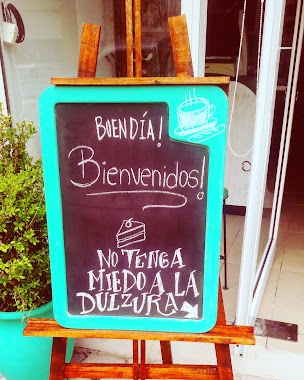 BUEN DÍA!
Bienvenidos!
NO TENGA
MIEDO A LA
DULZURA